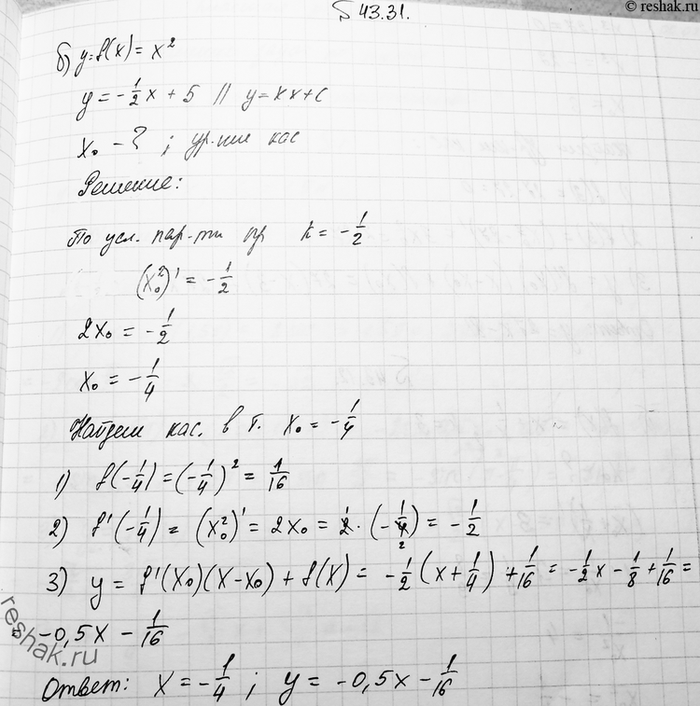 © reshak.ru
§ 43.31.
б) y=f(x) = x²
y = -1/2 x + 5 // y = kx + c
x₀ - ? ; ур-ние кас
Решение:
По усл. пар-ти пр k = -1/2
(x₀²)' = -1/2
2x₀ = -1/2
x₀ = -1/4
Найдем кас. в т. x₀ = -1/4
1) f(-1/4) = (-1/4)² = 1/16
2) f'(-1/4) = (x₀²)' = 2x₀ = 2·(-1/4) = -1/2
3) y = f'(x₀)(x-x₀) + f(x) = -1/2 (x + 1/4) + 1/16 = -1/2 x - 1/8 + 1/16 =
= -0,5x - 1/16
reshak.ru
Ответ: x = -1/4 ; y = -0,5x - 1/16